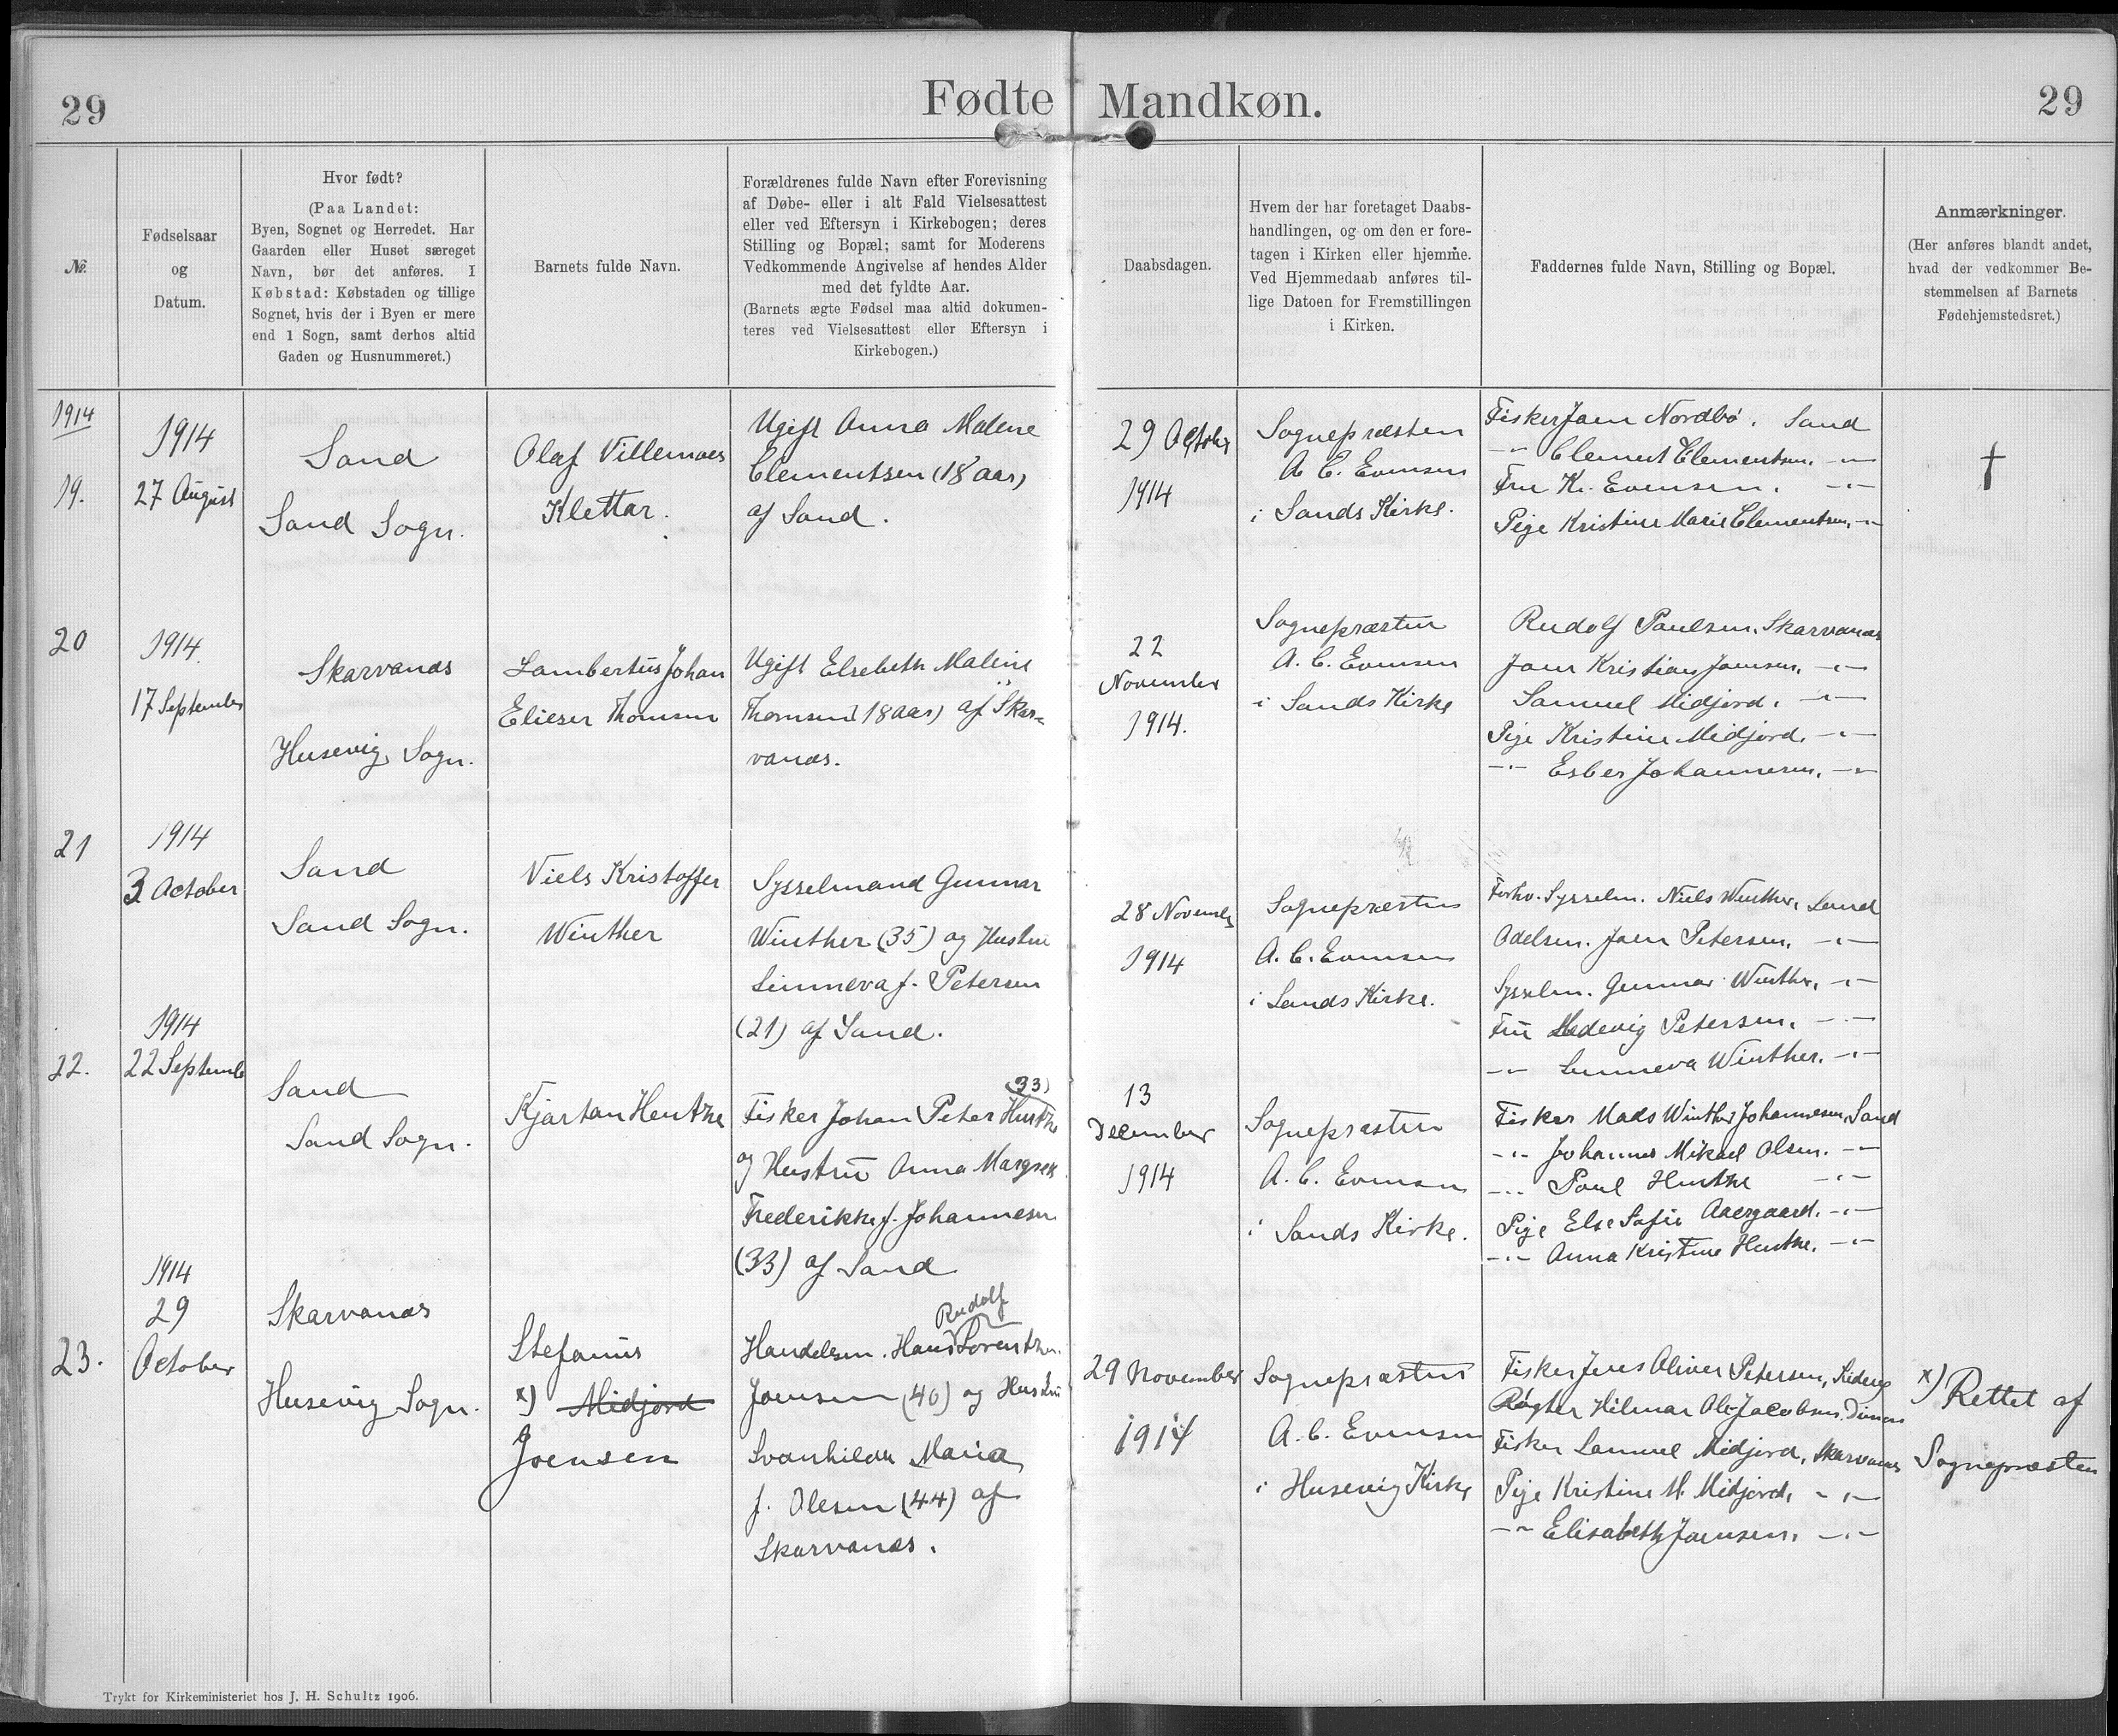 29
Fødte Mandkøn.
29
№.
Fødselsaar
og
Datum.
Hvor født?
(Paa Landet:
Byen, Sognet og Herredet. Har
Gaarden eller Huset særeget
Navn, bør det anføres. I
Købstad: Købstaden og tillige
Sognet, hvis der i Byen er mere
end 1 Sogn, samt derhos altid
Gaden og Husnummeret.)
Barnets fulde Navn.
Forældrenes fulde Navn efter Forevisning
af Døbe- eller i alt Fald Vielsesattest
eller ved Eftersyn i Kirkebogen; deres
Stilling og Bopæl; samt for Moderens
Vedkommende Angivelse af hendes Alder
med det fyldte Aar.
(Barnets ægte Fødsel maa altid dokumen-
teres ved Vielsesattest eller Eftersyn i
Kirkebogen.)
Daabsdagen.
Hvem der har foretaget Daabs-
handlingen, og om den er fore-
tagen i Kirken eller hjemme.
Ved Hjemmedaab anføres til-
lige Datoen for Fremstillingen
i Kirken.
Faddernes fulde Navn, Stilling og Bopæl.
Anmærkninger.
(Her anføres blandt andet,
hvad der vedkommer Be-
stemmelsen af Barnets
Fødehjemstedsret.)
1914
19.
1914
27 August
Sand
Sand Sogn.
Olaf Villemoes
Klettar.
Ugift Anna Malene
Clementsen (18 aar)
af Sand.
29 October
1914
Sognepræsten
A C. Evensen
i Sands Kirke.
Fisker Joen Nordbø. Sand
-"- Clement Clementsen. -"-
Fru K. Evensen. -"-
Pige Kristine Marie Clementsen, -"-
†
20
1914.
17 September
Skarvanæs
Husevig Sogn.
Lambertus Johan
Elieser Thomsen
Ugift Elsebeth Maline
Thomsen (18 aar) af Skar-
vanæs.
22
November
1914.
Sognepræsten
A. C. Evensen
i Sands Kirke
Rudolf Poulsen. Skarvanæs
Joen Kristian Joensen, -"-
Samuel Midjord. -"-
Pige Kristine Midjord. -"-
-"- Esber Johannesen. -"-
21
1914
3 October
Sand
Sand Sogn.
Niels Kristoffer
Winther
Sysselmand Gunnar
Winther (35) og Hustru
Sunneva f. Petersen
(21) af Sand.
28 November
1914
Sognepræsten
A. C. Evensen
i Sands Kirke.
Forhv. Sysselm. Niels Winther, Sand
Odelsm. Joen Petersen. -"-
Sysselm. Gunnar Winther, -"-
Fru Hedevig Petersen. -"-
-"- Sunneva Winther. -"-
22.
1914
22 September
Sand
Sand Sogn.
Kjartan Hentze
(33)
Fisker Johan Peter Hentze
og Hustru Anna Margrete
Frederikke f. Johannesen
(33) af Sand
13
December
1914
Sognepræsten
A. C. Evensen
i Sands Kirke.
Fisker Mads Winther Johannesen, Sand
-"- Johannes Mikael Olsen. -"-
-"- Poul Hentze -"-
Pige Else Sofie Aaergaard. -"-
-"- Anna Kristine Hentze. -"-
23.
1914
29
October
Skarvanæs
Husevig Sogn.
Stefanus
x) Midjord
Joensen
Rudolf
Handelsm. Hans Sorenthen.
Joensen (40) og Hustru
Svanhilda Maria
f. Olesen (44) af
Skarvanæs.
29 November
1914
Sognepræsten
A. C. Evensen
i Husevig Kirke
Fisker Jens Oliver Petersen,
Røgter Hilmar Ole Jacobsen. Dimon
Fisker Samuel Midjord, Skarvanæs
Pige Kristine M. Midjord, -"-
-"- Elisabeth Joensen. -"-
x) Rettet af
Sognepræsten
Trykt for Kirkeministeriet hos J. H. Schultz 1906.